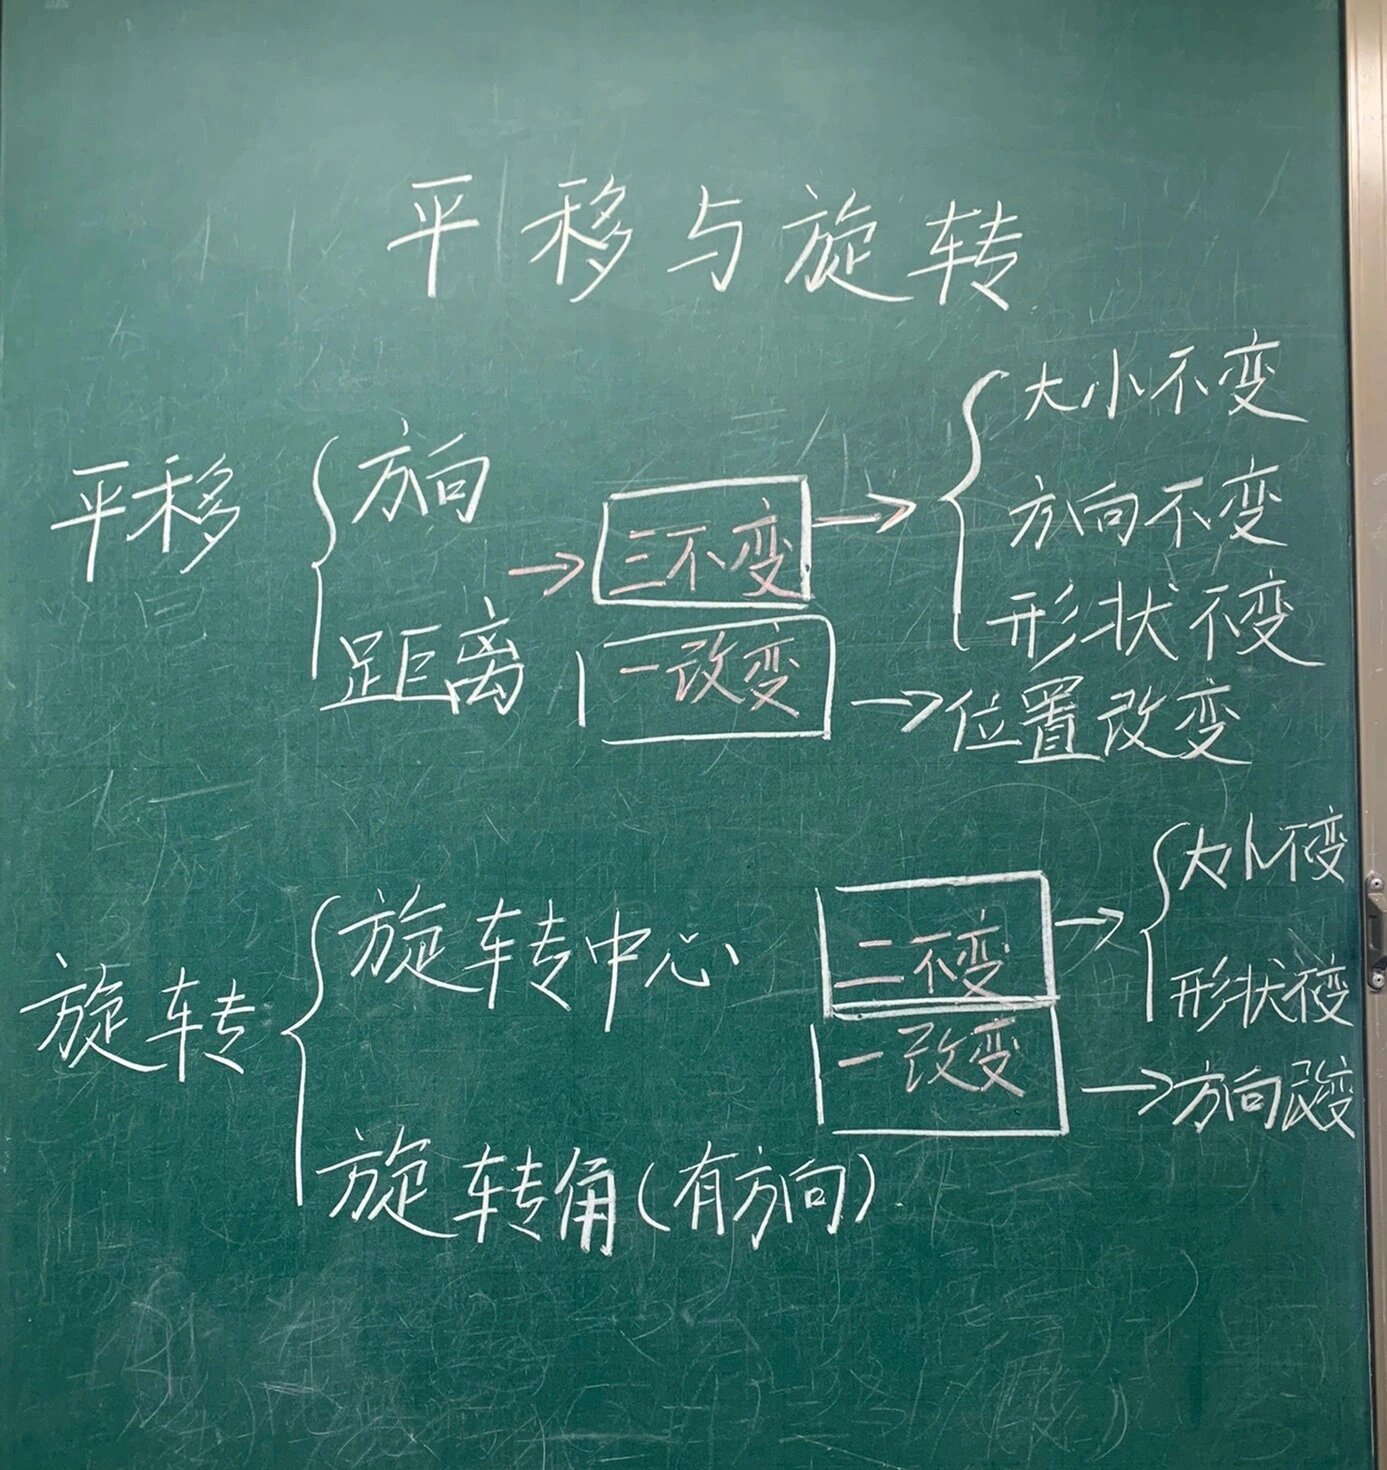 平移与旋转
平移
方向
距离
三不变
一改变
大小不变
方向不变
形状不变
位置改变
旋转
旋转中心
旋转角(有方向)
二不变
一改变
大小不变
形状不变
方向改变